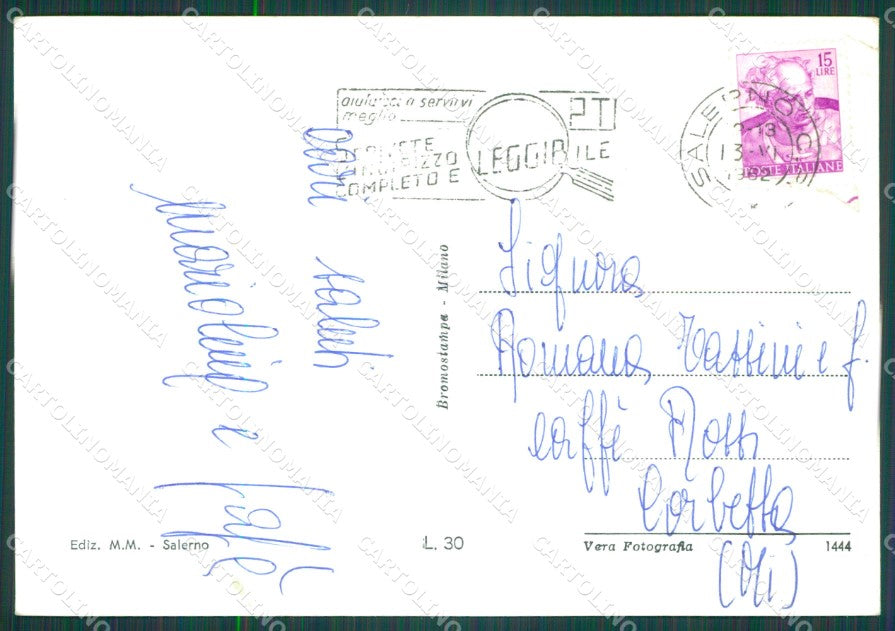 aiutateci a servirvi
meglio
SCRIVETE
INDIRIZZO
COMPLETO E LEGGIBILE
PT
SALERNO
13 VI
1962
15
LIRE
POSTE ITALIANE
cari saluti
Mariolino e
Signora
Romana Tassini e f.
caffè Rossi
Corbetta
(Mi)
Bromostampa - Milano
Ediz. M.M. - Salerno
L. 30
Vera Fotografia
1444
CARTOLINOMANIA